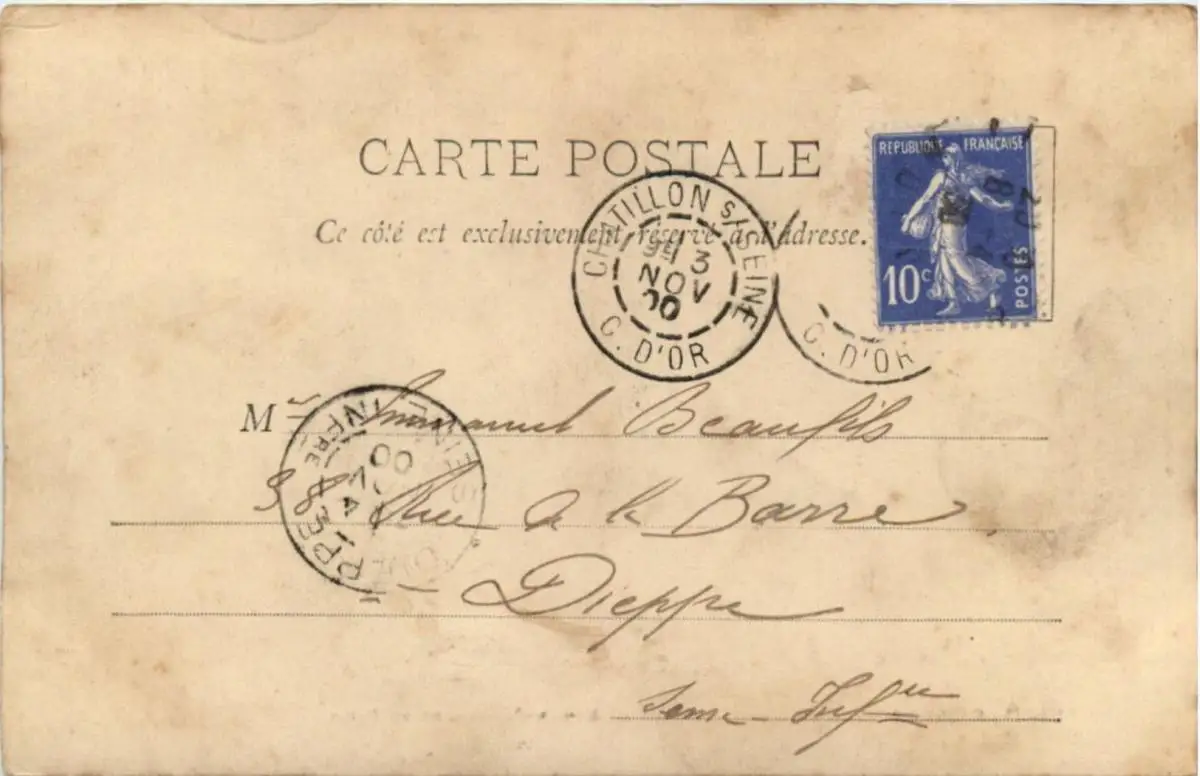 CARTE POSTALE
Ce côté est exclusivement réservé à l'adresse.
REPUBLIQUE FRANÇAISE
10c POSTES
CHATILLON S/SEINE
3
NOV
00
C. D'OR
C. D'OR
Mr Emmanuel Beaufils
38 Rue de la Barre
Dieppe
Seine Infre
SEINE INFRE
00